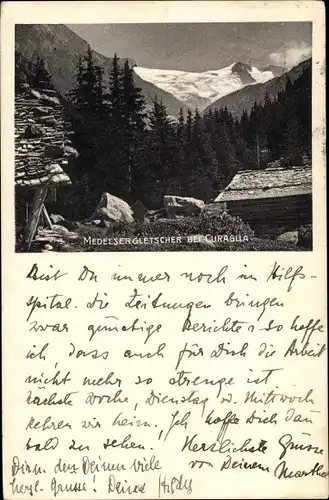 MEDELSERGLETSCHER BEI CURAGLIA
Bist Du immer noch im Hilfs-
spital. die Zeitungen bringen
zwar günstige Berichte & so hoffe
ich, dass auch für Dich die Arbeit
nicht mehr so strenge ist
nächste Woche, Dienstag od. Mittwoch
kehren wir heim. Ich hoffe Dich dan
bald zu sehen. Herzlichste Grüsse
von Deinem
Dir u. den Deinen viele
herzl. Grüsse! Deine